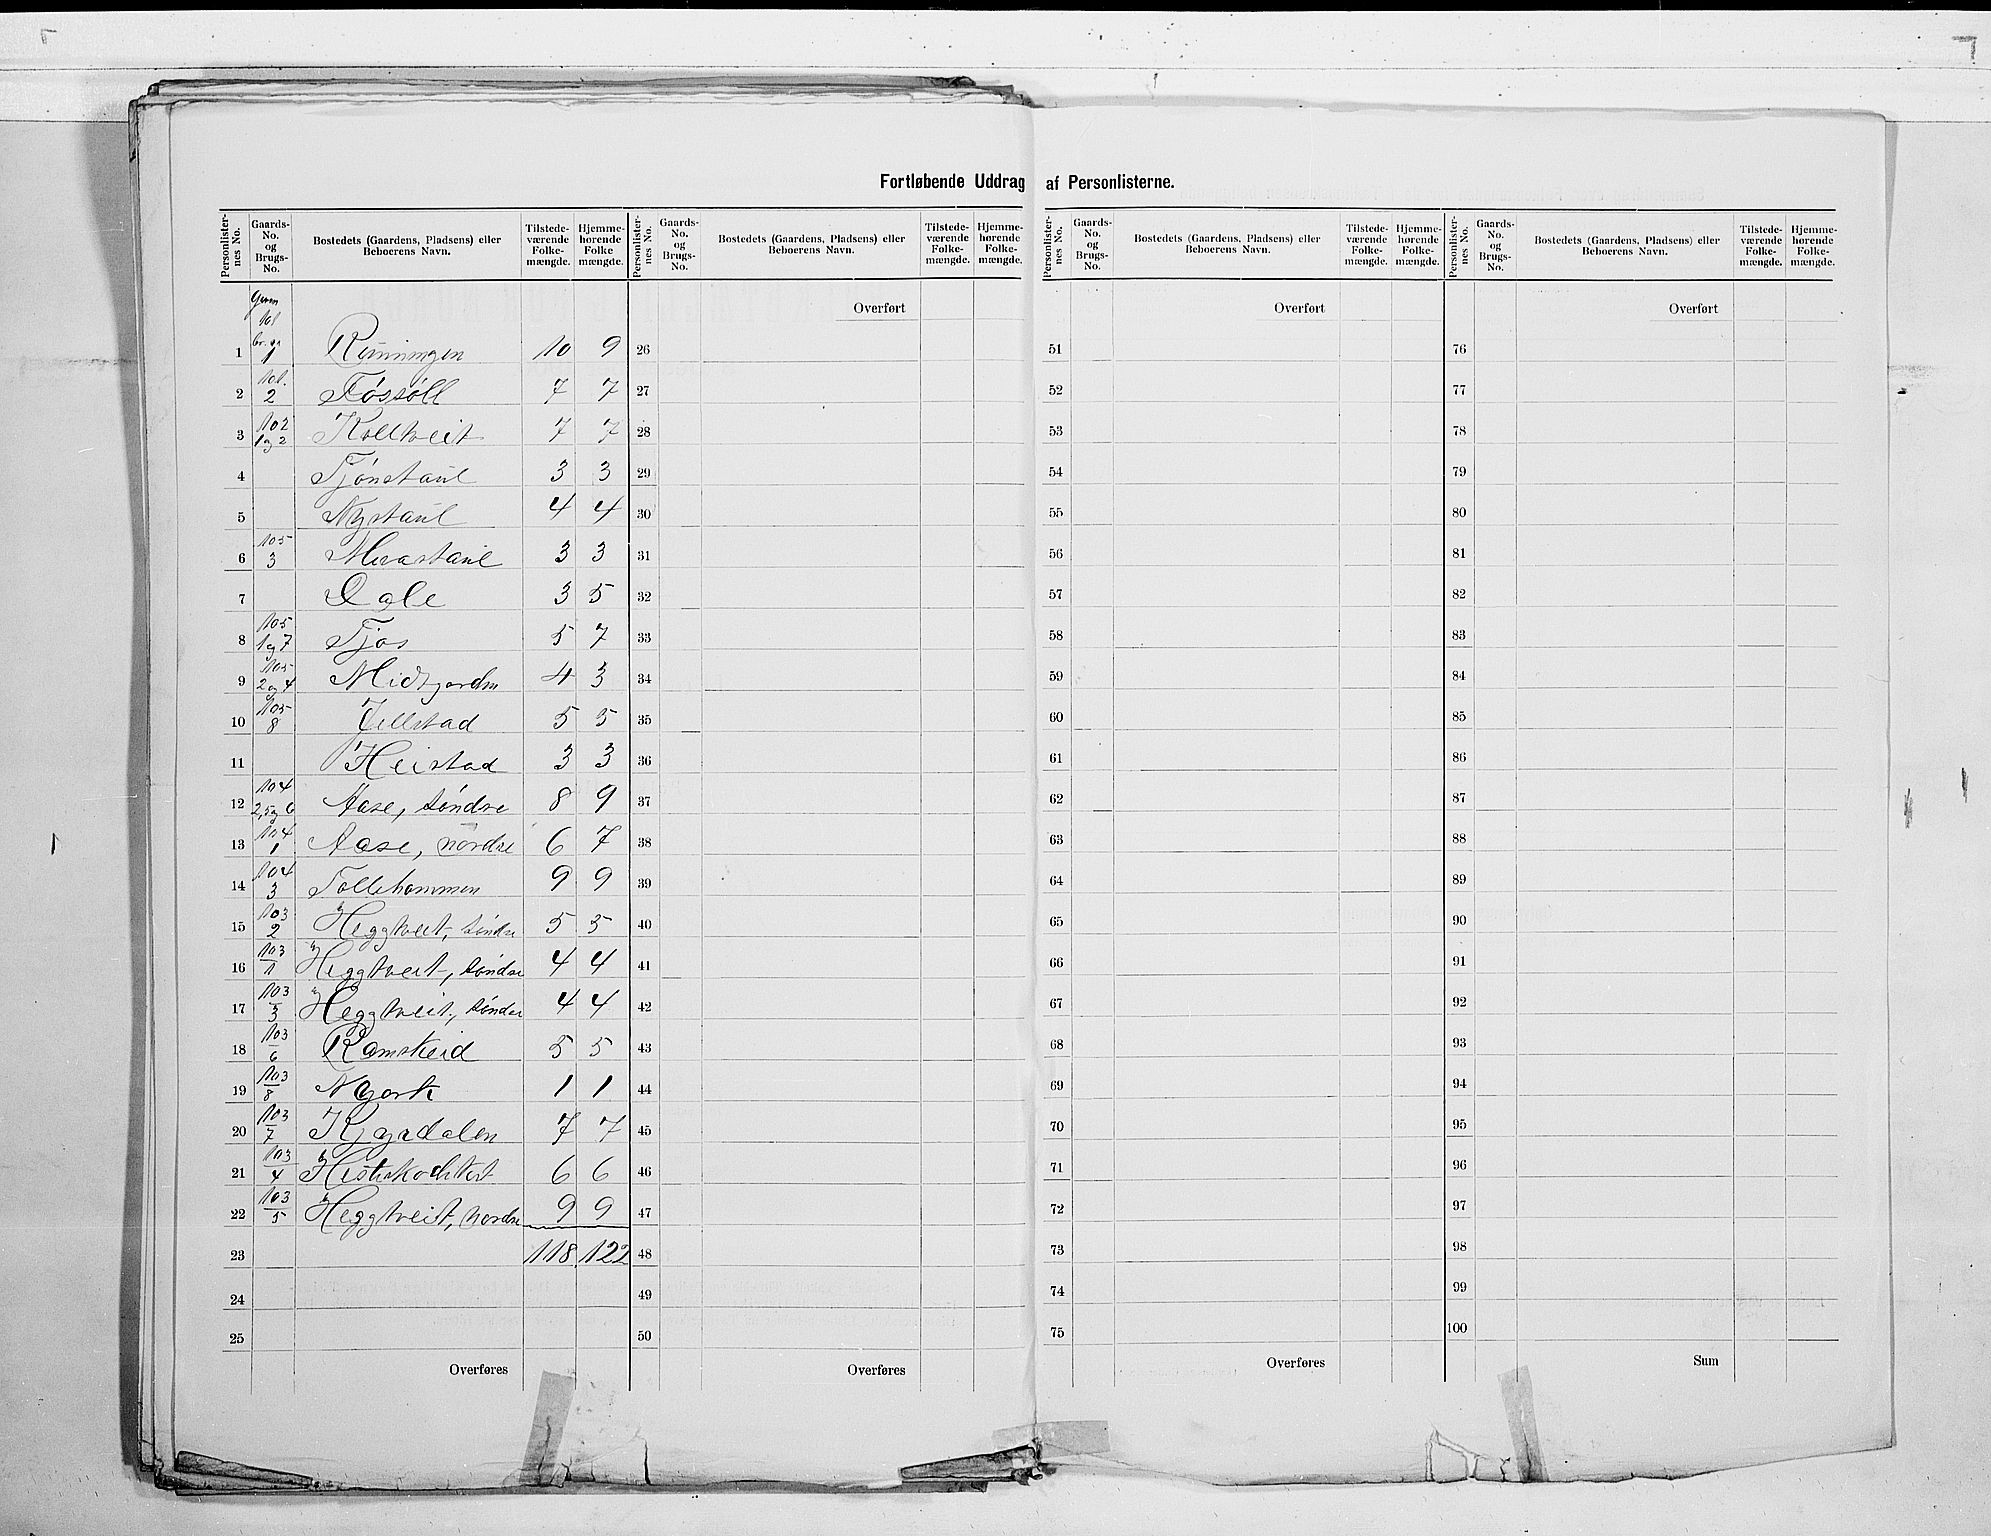 Fortløbende Uddrag af Personlisterne.
Personlister-nes No. | Gaards-No. og Brugs-No. | Bostedets (Gaardens, Pladsens) eller Beboerens Navn. | Tilstede-værende Folke-mængde. | Hjemme-hørende Folke mængde.
Garen
101
br. no
1 | 1 | Rønningen | 10 | 9
2 | 101. 2 | Fossøll | 7 | 7
3 | 102 1 og 2 | Kolltveit | 7 | 7
4 | Tjønstaul | 3 | 3
5 | Nystaul | 4 | 4
6 | 105 3 | Moastaul | 3 | 3
7 | Dale | 3 | 5
8 | 105 1 og 7 | Tjos | 5 | 7
9 | 105 2 og 4 | Midtgarden | 4 | 3
10 | 105 8 | Jellstad | 5 | 5
11 | Heistad | 3 | 3
12 | 104 2, 5 og 6 | Aase, søndre | 8 | 9
13 | 104 1 | Aase, nordre | 6 | 7
14 | 104 3 | Tollehommen | 9 | 9
15 | 103 2 | Heggtveit, søndre | 5 | 5
16 | 103 1 | Heggtveit, søndre | 4 | 4
17 | 103 3 | Heggtveit, søndre | 4 | 4
18 | 103 6 | Ramskeid | 5 | 5
19 | 103 8 | Nyork | 1 | 1
20 | 103 7 | Kyrdalen | 7 | 7
21 | 103 4 | 6 | 6
22 | 103 5 | Heggtveit, nordre | 9 | 9
23 | 118 | 122
24
25
Overføres
Personlister-nes No. | Gaards-No. og Brugs-No. | Bostedets (Gaardens, Pladsens) eller Beboerens Navn. | Tilstede-værende Folke-mængde. | Hjemme-hørende Folke-mængde.
Overført
26
27
28
29
30
31
32
33
34
35
36
37
38
39
40
41
42
43
44
45
46
47
48
49
50
Overføres
Personlister-nes No. | Gaards-No. og Brugs-No. | Bostedets (Gaardens, Pladsens) eller Beboerens Navn. | Tilstede-værende Folke-mængde. | Hjemme-hørende Folke-mængde.
Overført
51
52
53
54
55
56
57
58
59
60
61
62
63
64
65
66
67
68
69
70
71
72
73
74
75
Overføres
Personlister-nes No. | Gaards-No. og Brugs-No. | Bostedets (Gaardens, Pladsens) eller Beboerens Navn. | Tilstede-værende Folke-mængde. | Hjemme-hørende Folke-mængde.
Overført
76
77
78
79
80
81
82
83
84
85
86
87
88
89
90
91
92
93
94
95
96
97
98
99
100
Sum